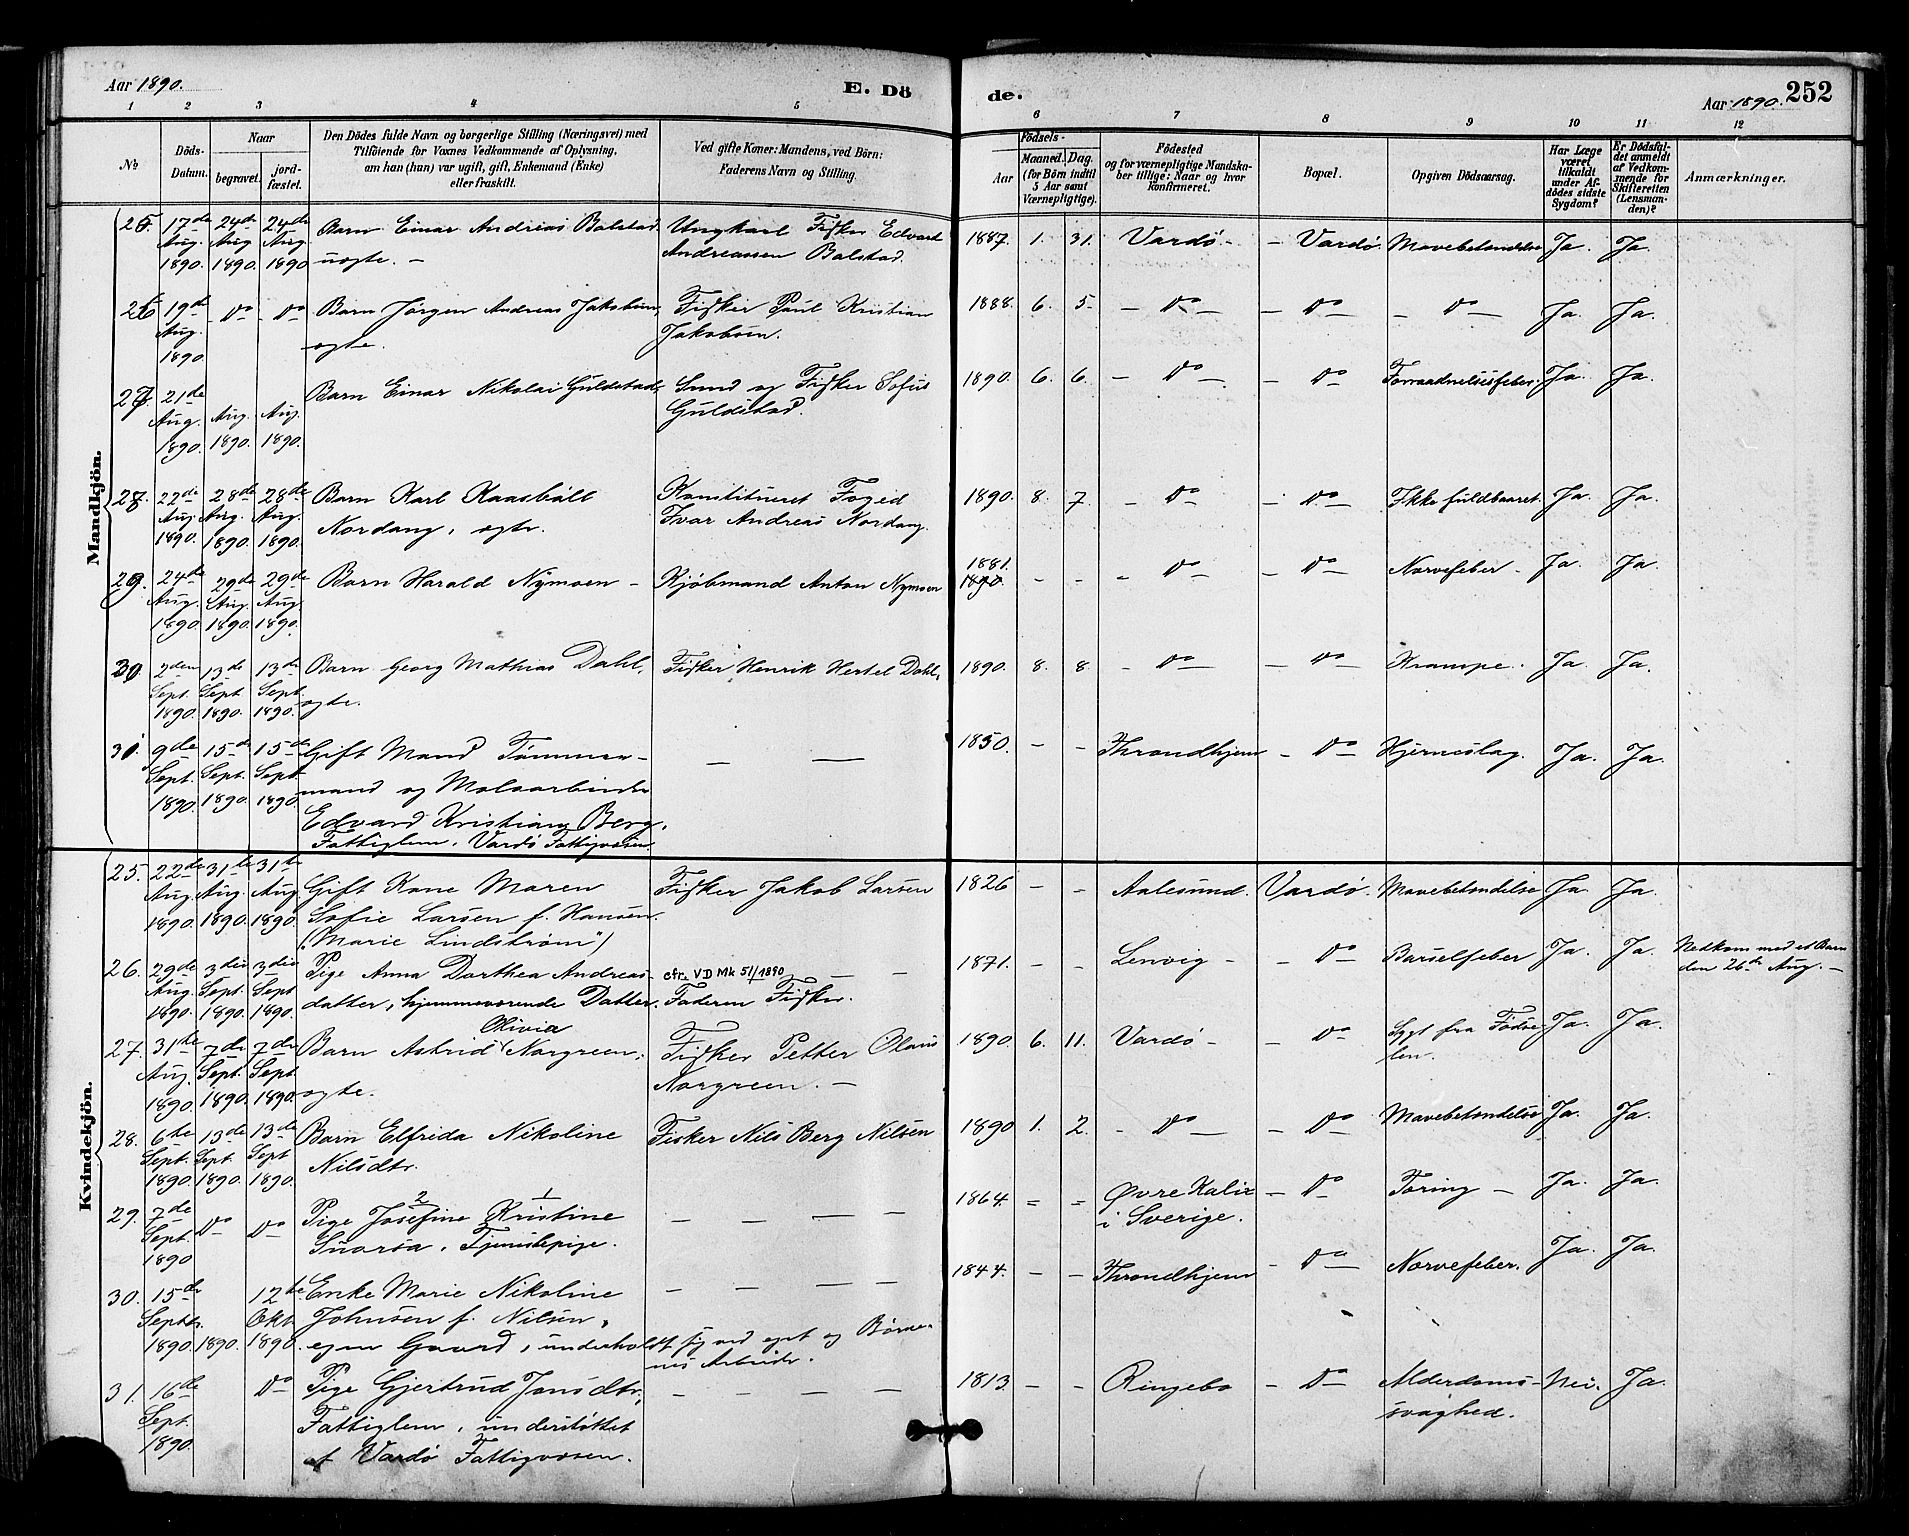 Aar 1890.
E. Dö
de.
Aar 1890. 252
1 2 3 4 5 6 7 8 9 10 11 12
No
Döds-Datum.
Naar
begravet.
jord-fæstet.
Den Dödes fulde Navn og borgerlige Stilling (Næringsvei) med
Tilföiende for Voxnes Vedkommende af Oplysning,
om han (han) var ugift, gift, Enkemand (Enke)
eller fraskilt.
Ved gifte Koner: Mandens, ved Börn:
Faderens Navn og Stilling.
Födsels-
Aar
Maaned. Dag.
(for Börn indtil
5 Aar samt
Værnepligtige).
Födested
og for værnepligtige Mandska-
ber tillige: Naar og hvor
konfirmeret.
Bopæl.
Opgiven Dödsaarsag.
Har Læge
været
tilkaldt
under Af-
dödes sidste
Sygdom?
Er Dödsfal-
det anmeldt
af Vedkom-
mende for
Skifteretten
(Lensman-
den)?
Anmærkninger.
Mandkjön.
25. 17de Aug. 1890. 24de Aug 1890. 24de Aug 1890 Barn Einar Andreas Balstad Ungkarl Fisker Edvard 1887. 1. 31. Vardö - - Vardö. Mavebetændelse Ja. Ja.
uægte. - Andreassen Balstad.
26 19de Aug. 1890. Do Do Barn Jørgen Andreas Jakobsen, Fisker Paul Kristian 1888. 6. 5. Do Do Do Ja. Ja.
ægte. Jakobsen.
27. 21de Aug. 1890. Aug. 1890. Aug. 1890. Barn Einar Nikolai Guldstad, Smed og Fisker Sofus 1890. 6. 6. Do Do Forraadnelsesfeber. Ja. Ja.
Guldstad.
28. 22de Aug. 1890. 28de Aug. 1890. 28de Aug. 1890. Barn Karl Kaasböll Konstitueret Foged 1890. 8. 7. Do Do Ikke fuldbaaret. Ja. Ja.
Nordang, ægte. Ivar Andreas Nordang.
29. 24de Aug. 1890. 29de Aug. 1890. 29de Aug. 1890. Barn Harald Nymoen - Kjöbmand Anton Nymoen 1881. 1890. - - Do Do Nervefeber - Ja. Ja.
30 2den Sept. 1890. 13de Sept 1890. 13de Sept. 1890. Barn Georg Mathias Dahl, Fisker Henrik Hertel Dahl, 1890. 8. 8. Do Do Krampe. Ja. Ja.
ægte.
31 9de Sept. 1890. 15de Sept. 1890. 15de Sept. 1890. Gift Mand Tømmer- — — 1850. - - Throndhjem - Do Hjerneslag. Ja. Ja.
mand og Malerarbeider
Edvard Kristian Berg,
Fattiglem, Vardö Fattigvæsen.
Kvindekjön.
25. 22de Aug. 1890. 31te Aug. 1890. 31te Aug 1890. Gift Kone Maren Fisker Jakob Larsen 1826 - - Aalesund. Vardö. Mavebetændelse Ja. Ja.
Sofie Larsen f. Hansen.
("Marie Lindstrøm")
26. 29de Aug. 1890. 3die Sept. 1890. 3die Sept 1890. Pige Anna Dorthea Andreas- cfr. VD Mk 51/1890 — — 1871. - - Lenvig - Do Barselfeber Ja. Ja. Nedkom med et Barn
datter, hjemmeværende Datter. Faderen Fisker. den 26de Aug. -
Olivia
27. 31te Aug. 1890. 7de Sept. 1890. 7de Sept. 1890. Barn Astrid Norgreen, Fisker Petter Olaus 1890. 6. 11. Vardö - - Do Sygt fra Fødse- Ja. Ja.
ægte. Norgreen. - len.
28. 6te Sept. 1890. 13de Sept. 1890. 13de Sept 1890. Barn Elfrida Nikoline Fisker Nils Berg Nilsen 1890 1. 2. - Do - Do Mavebetændelse Ja. Ja.
Nilsdtr.
2 1
29. 7de Sept. 1890 Do Do Pige Josefine Kristine — — — — 1864. - - Øvre Kalix - Do Tæring - Ja. Ja.
Suorsa, Tjenestepige. i Sverige.
30. 15de Septbr. 1890. 1890. 12te Okt. 1890. Enke Marie Nikoline — — — — 1844. - - Throndhjem - Do Nervefeber. Ja. Ja.
Johnsen f. Nilsen,
egen Gaard, underholdt sig ved eget og Börne-
nes Arbeide.
31. 16de Sept. 1890. Do Pige Gjertrud Jonsdtr, — — — — 1813 - - Ringebo - Do Alderdoms- Nei. Ja.
Fattiglem, understøttet svaghed.
af Vardö Fattigvæsen.